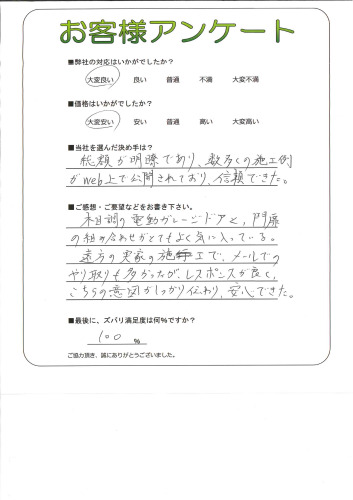 お客様アンケート
■弊社の対応はいかがでしたか？
大変良い 良い 普通 不満 大変不満
■価格はいかがでしたか？
大変安い 安い 普通 高い 大変高い
■当社を選んだ決め手は？
総額が明瞭であり、数多くの施工例
がweb上で公開されており、信頼できた。
■ご感想・ご要望などをお書き下さい。
木目調の電動ガレージドアと、門扉
の組み合わせがとてもよく気に入っている。
遠方の実家の施工で、メールでの
やり取りも多かったが、レスポンスが良く、
こちらの意図がしっかり伝わり、安心できた。
■最後に、ズバリ満足度は何％ですか？
100 %
ご協力頂き、誠にありがとうございました。